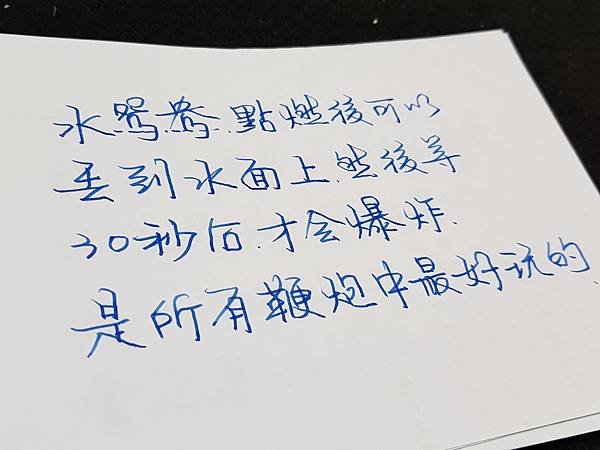 水鴛鴦.點燃後可以
丟到水面上.然後等
30秒后.才会爆炸.
是所有鞭炮中最好玩的.